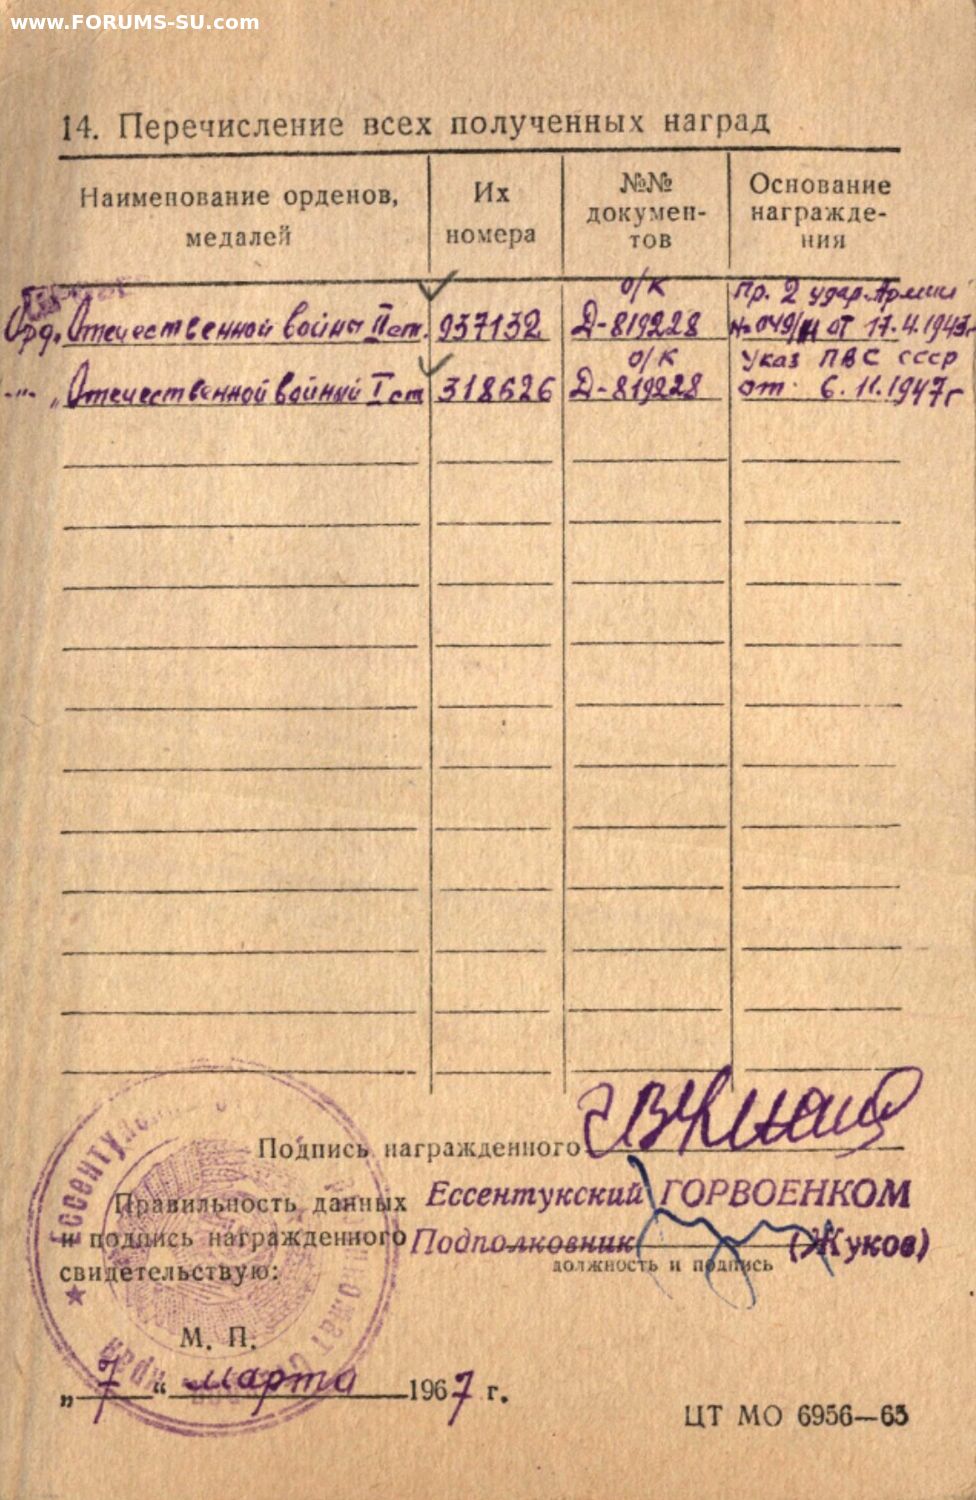 www.FORUMS-SU.com
14. Перечисление всех полученных наград
Наименование орденов, медалей
Их номера
№№ документов
Основание награжде-
ния
о/к Пр. 2 удар. Армии
Орд. Отечественной войны II ст. 937132 Д-819228 № 049/н от 17.4.1943г
о/к Указ ПВС СССР
-"- „Отечественной войный I ст 318626 Д-819228 от 6.11.1947г
Подпись награжденного
Правильность данных Ессентукский ГОРВОЕНКОМ
и подпись награжденного Подполковник (Жуков)
свидетельствую: должность и подпись
М. П.
„7“ марта 1967 г.
ЦТ МО 6956—65